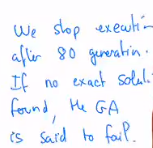 We stop executi-
after 80 generation.
If no exact soluti-
found, the GA
is said to fail.